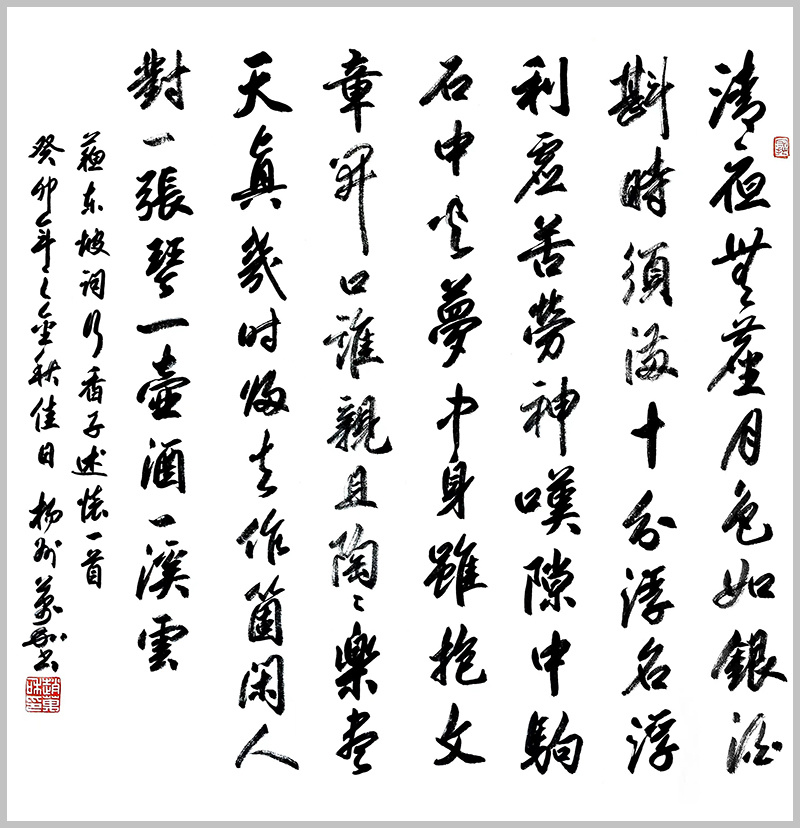 清夜無塵月色如銀酒
斟時須滿十分浮名浮
利虛苦勞神嘆隙中駒
石中火夢中身雖抱文
章開口誰親且陶々樂盡
天真幾时歸去作箇闲人
對一張琴一壺酒一溪雲
蘇東坡詞行香子述懷一首
癸卯年之金秋佳日 楊州萬书